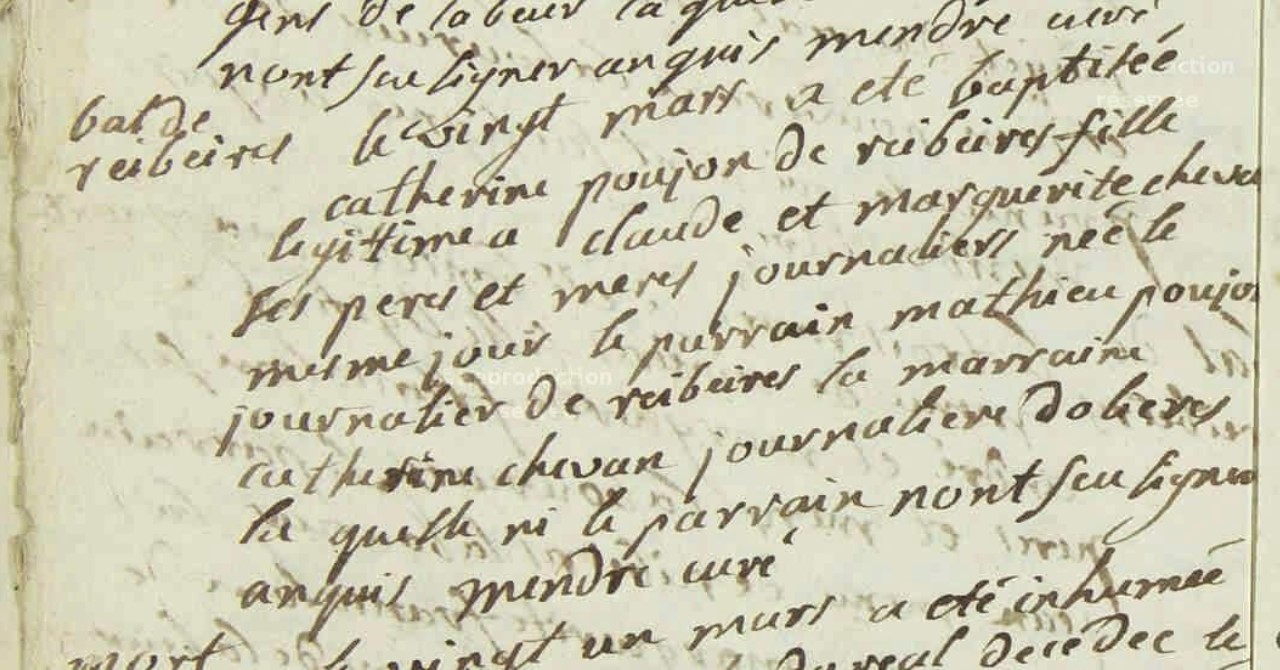 gens de labeur la
nont sçu signer anquis mendre curé
bat de
reibeires le vingt mars a eté baptiseé
catherine poujon de reibeires fille
legittime a claude et marguerite chevan
ses peres et meres journaliers neé le
mesme jour le parrain mathieu poujon
journalier de reibeires la marraine
catherine chevan journaliere dolieres
la quelle ni le parrain nont sçu signer
anquis mendre curé
mort le vingt un mars a eté inhumeé
decedeé le